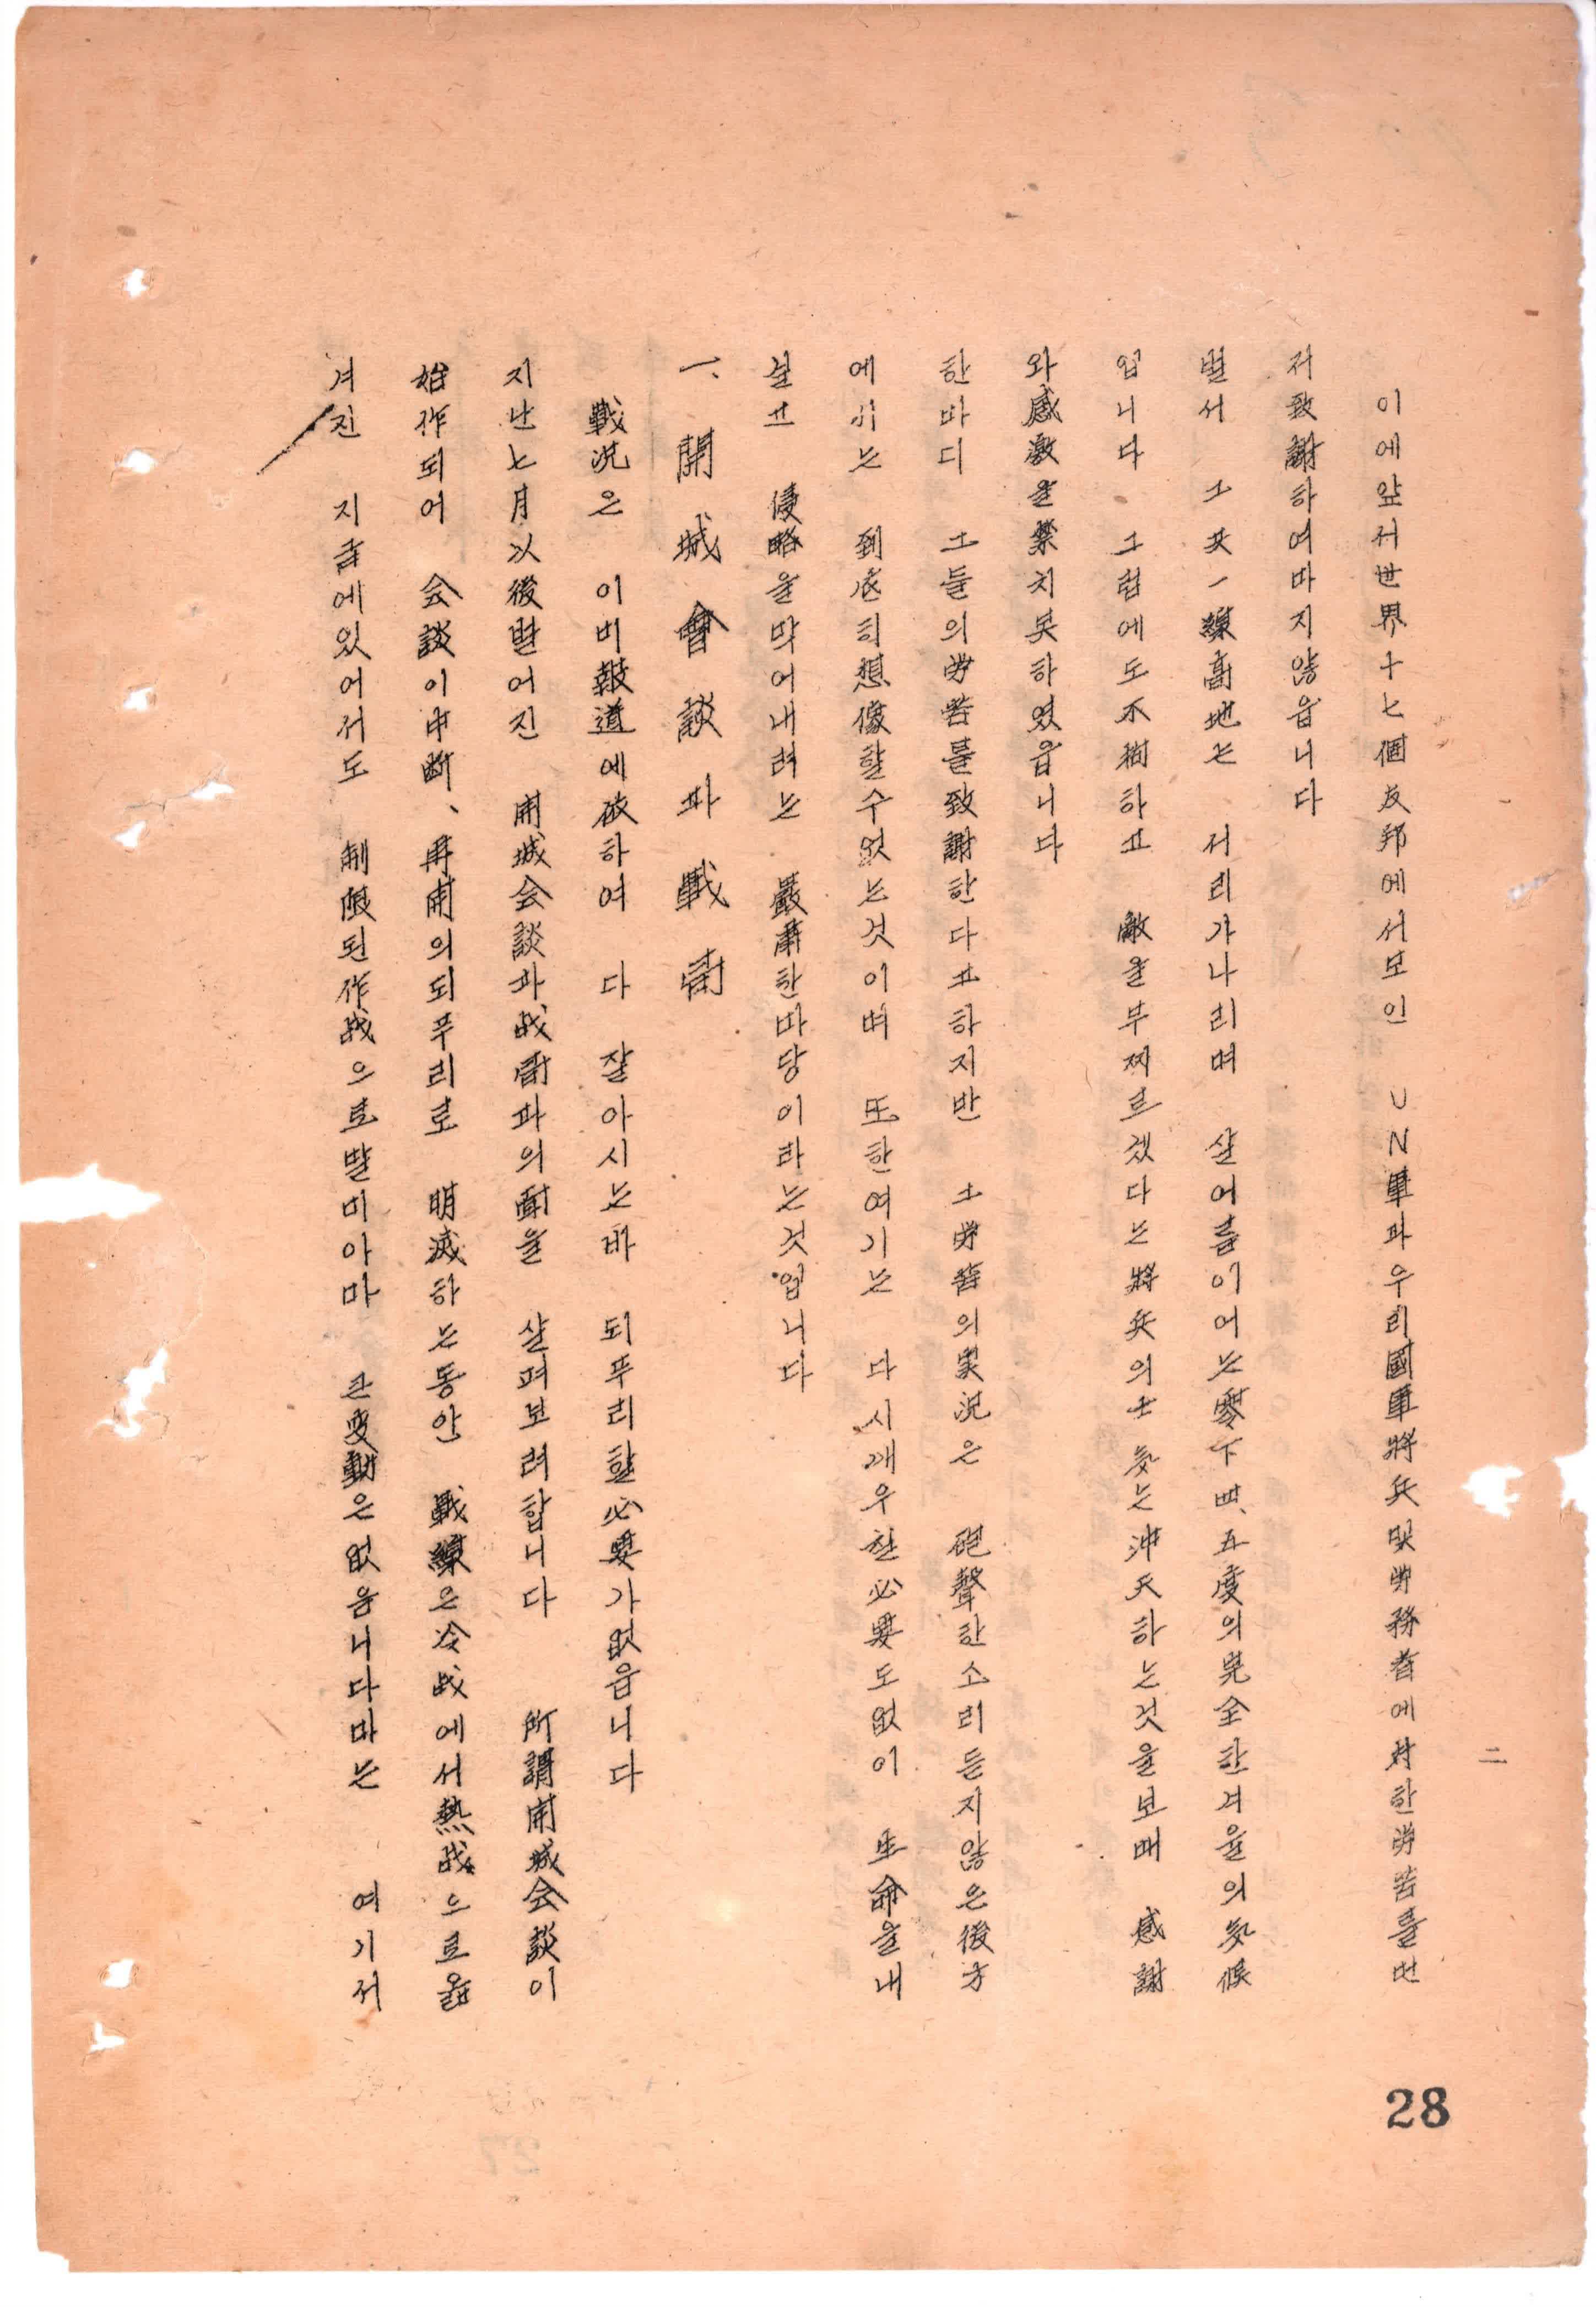 二
이에앞서世界十七個友邦에서보인 UN軍과우리國軍將兵및労務者에対한労苦를먼
저致謝하여마지않읍니다
벌서 그又一線高地는 서리가나리며 살어름이어는零下四、五度의完全한겨울의気候
입니다 그럼에도不拘하고 敵을무찌르겠다는將兵의士気는沖天하는것을보매 感謝
와感激을禁치못하였읍니다
한마디 그들의労苦를致謝한다고하지만 그労苦의実況은 砲聲한소리듣지않은後方
에서는 到底히想像할수없는것이며 또한여기는 다시깨우칠必要도없이 生命을내
걸고 侵略을막어내려는 嚴肅한마당이라는것입니다
一、開城會談과戰鬪
戰況은 이미報道에依하여 다 잘아시는바 되푸리할必要가없읍니다
지난七月以後벌어진 開城会談과战鬪과의面을 살펴보려합니다 所謂開城会談이
始作되어 会談이中断、再開의되푸리로 明滅하는동안 戰線은冷战에서熱战으로옮
겨진 지금에있어서도 制限된作战으로말미아마 큰変動은없읍니다마는 여기서
28